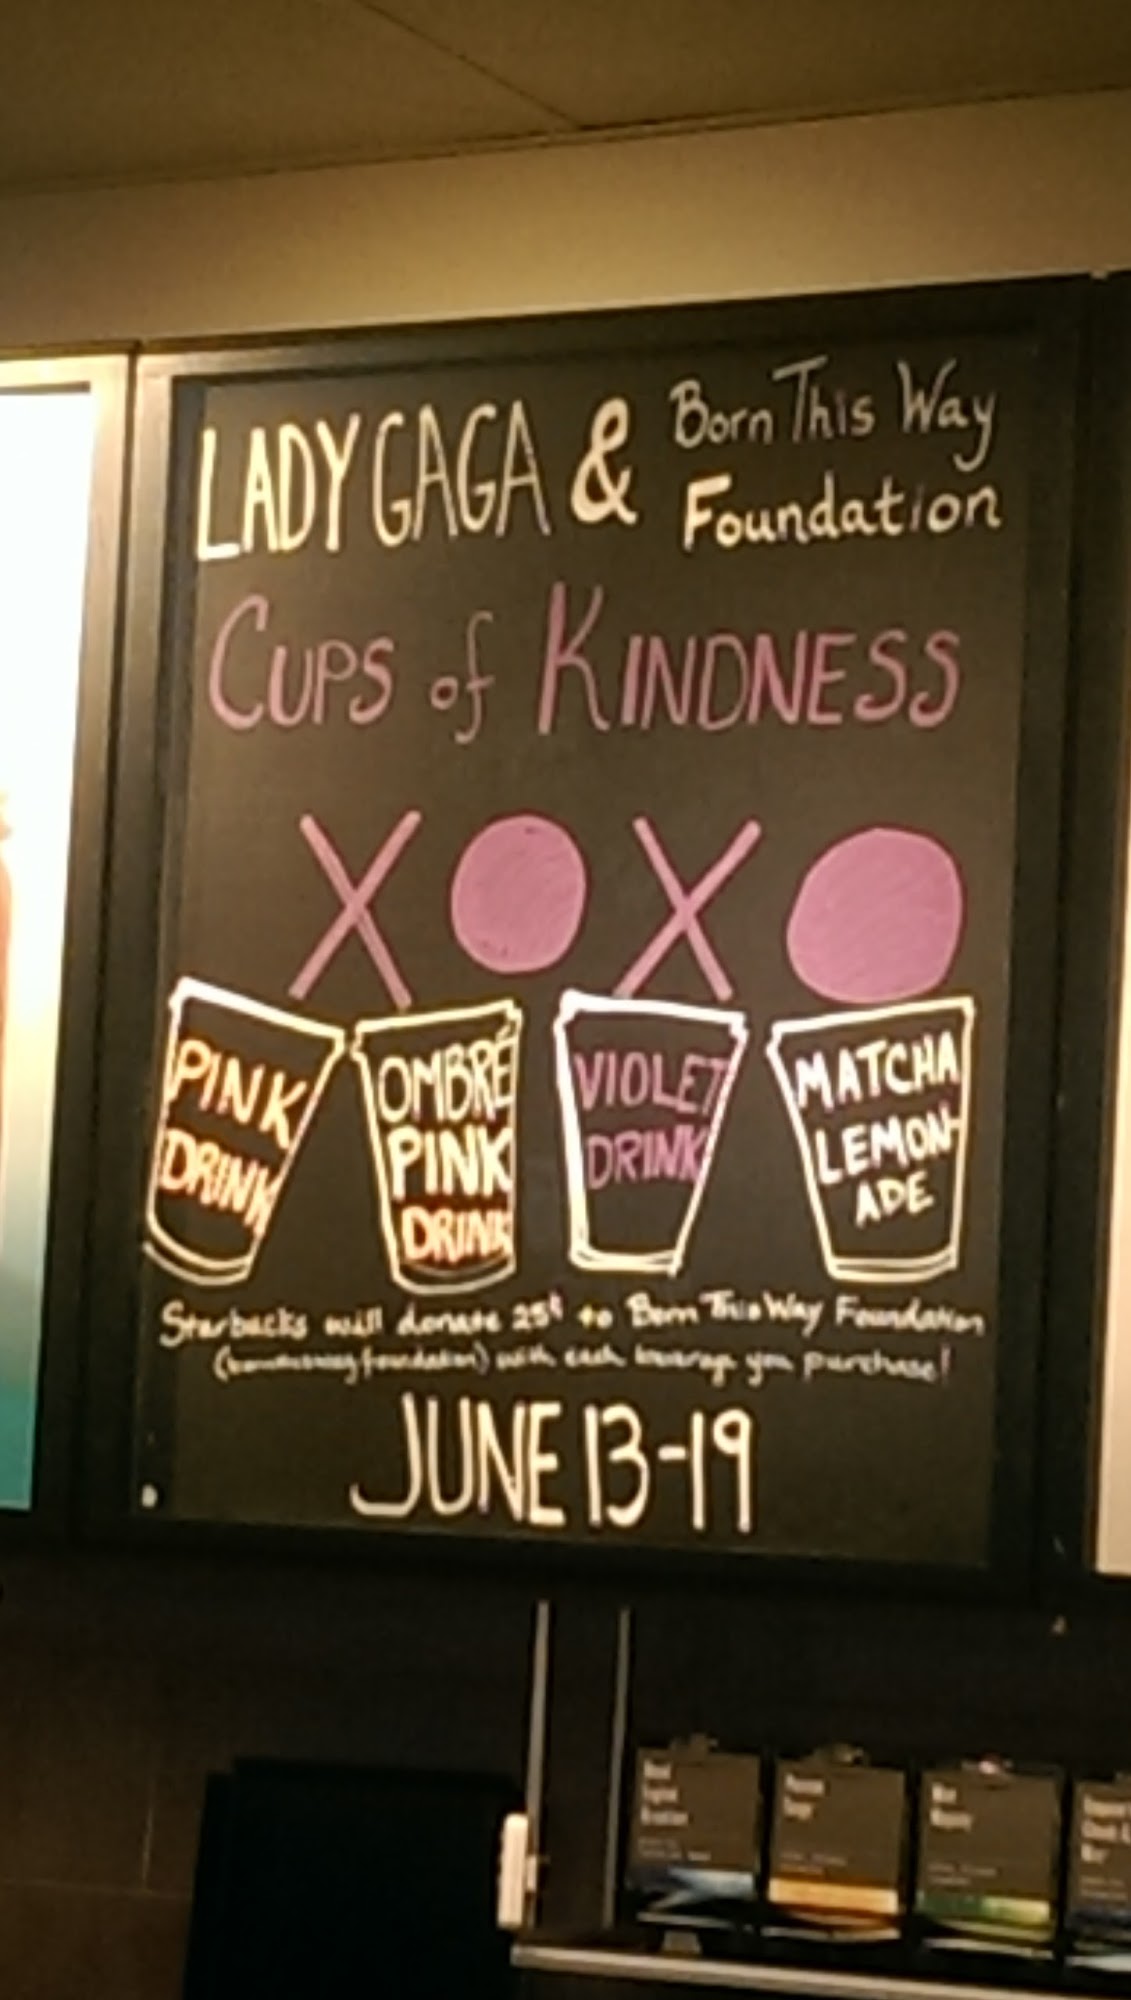 LADY GAGA & Born This Way
Foundation
CUPS of KINDNESS
XOXO
PINK
DRINK
OMBRÉ
PINK
DRINK
VIOLET
DRINK
MATCHA
LEMON-
ADE
Starbucks will donate 25¢ to Born This Way Foundation
with each beverage you purchase!
JUNE 13-19